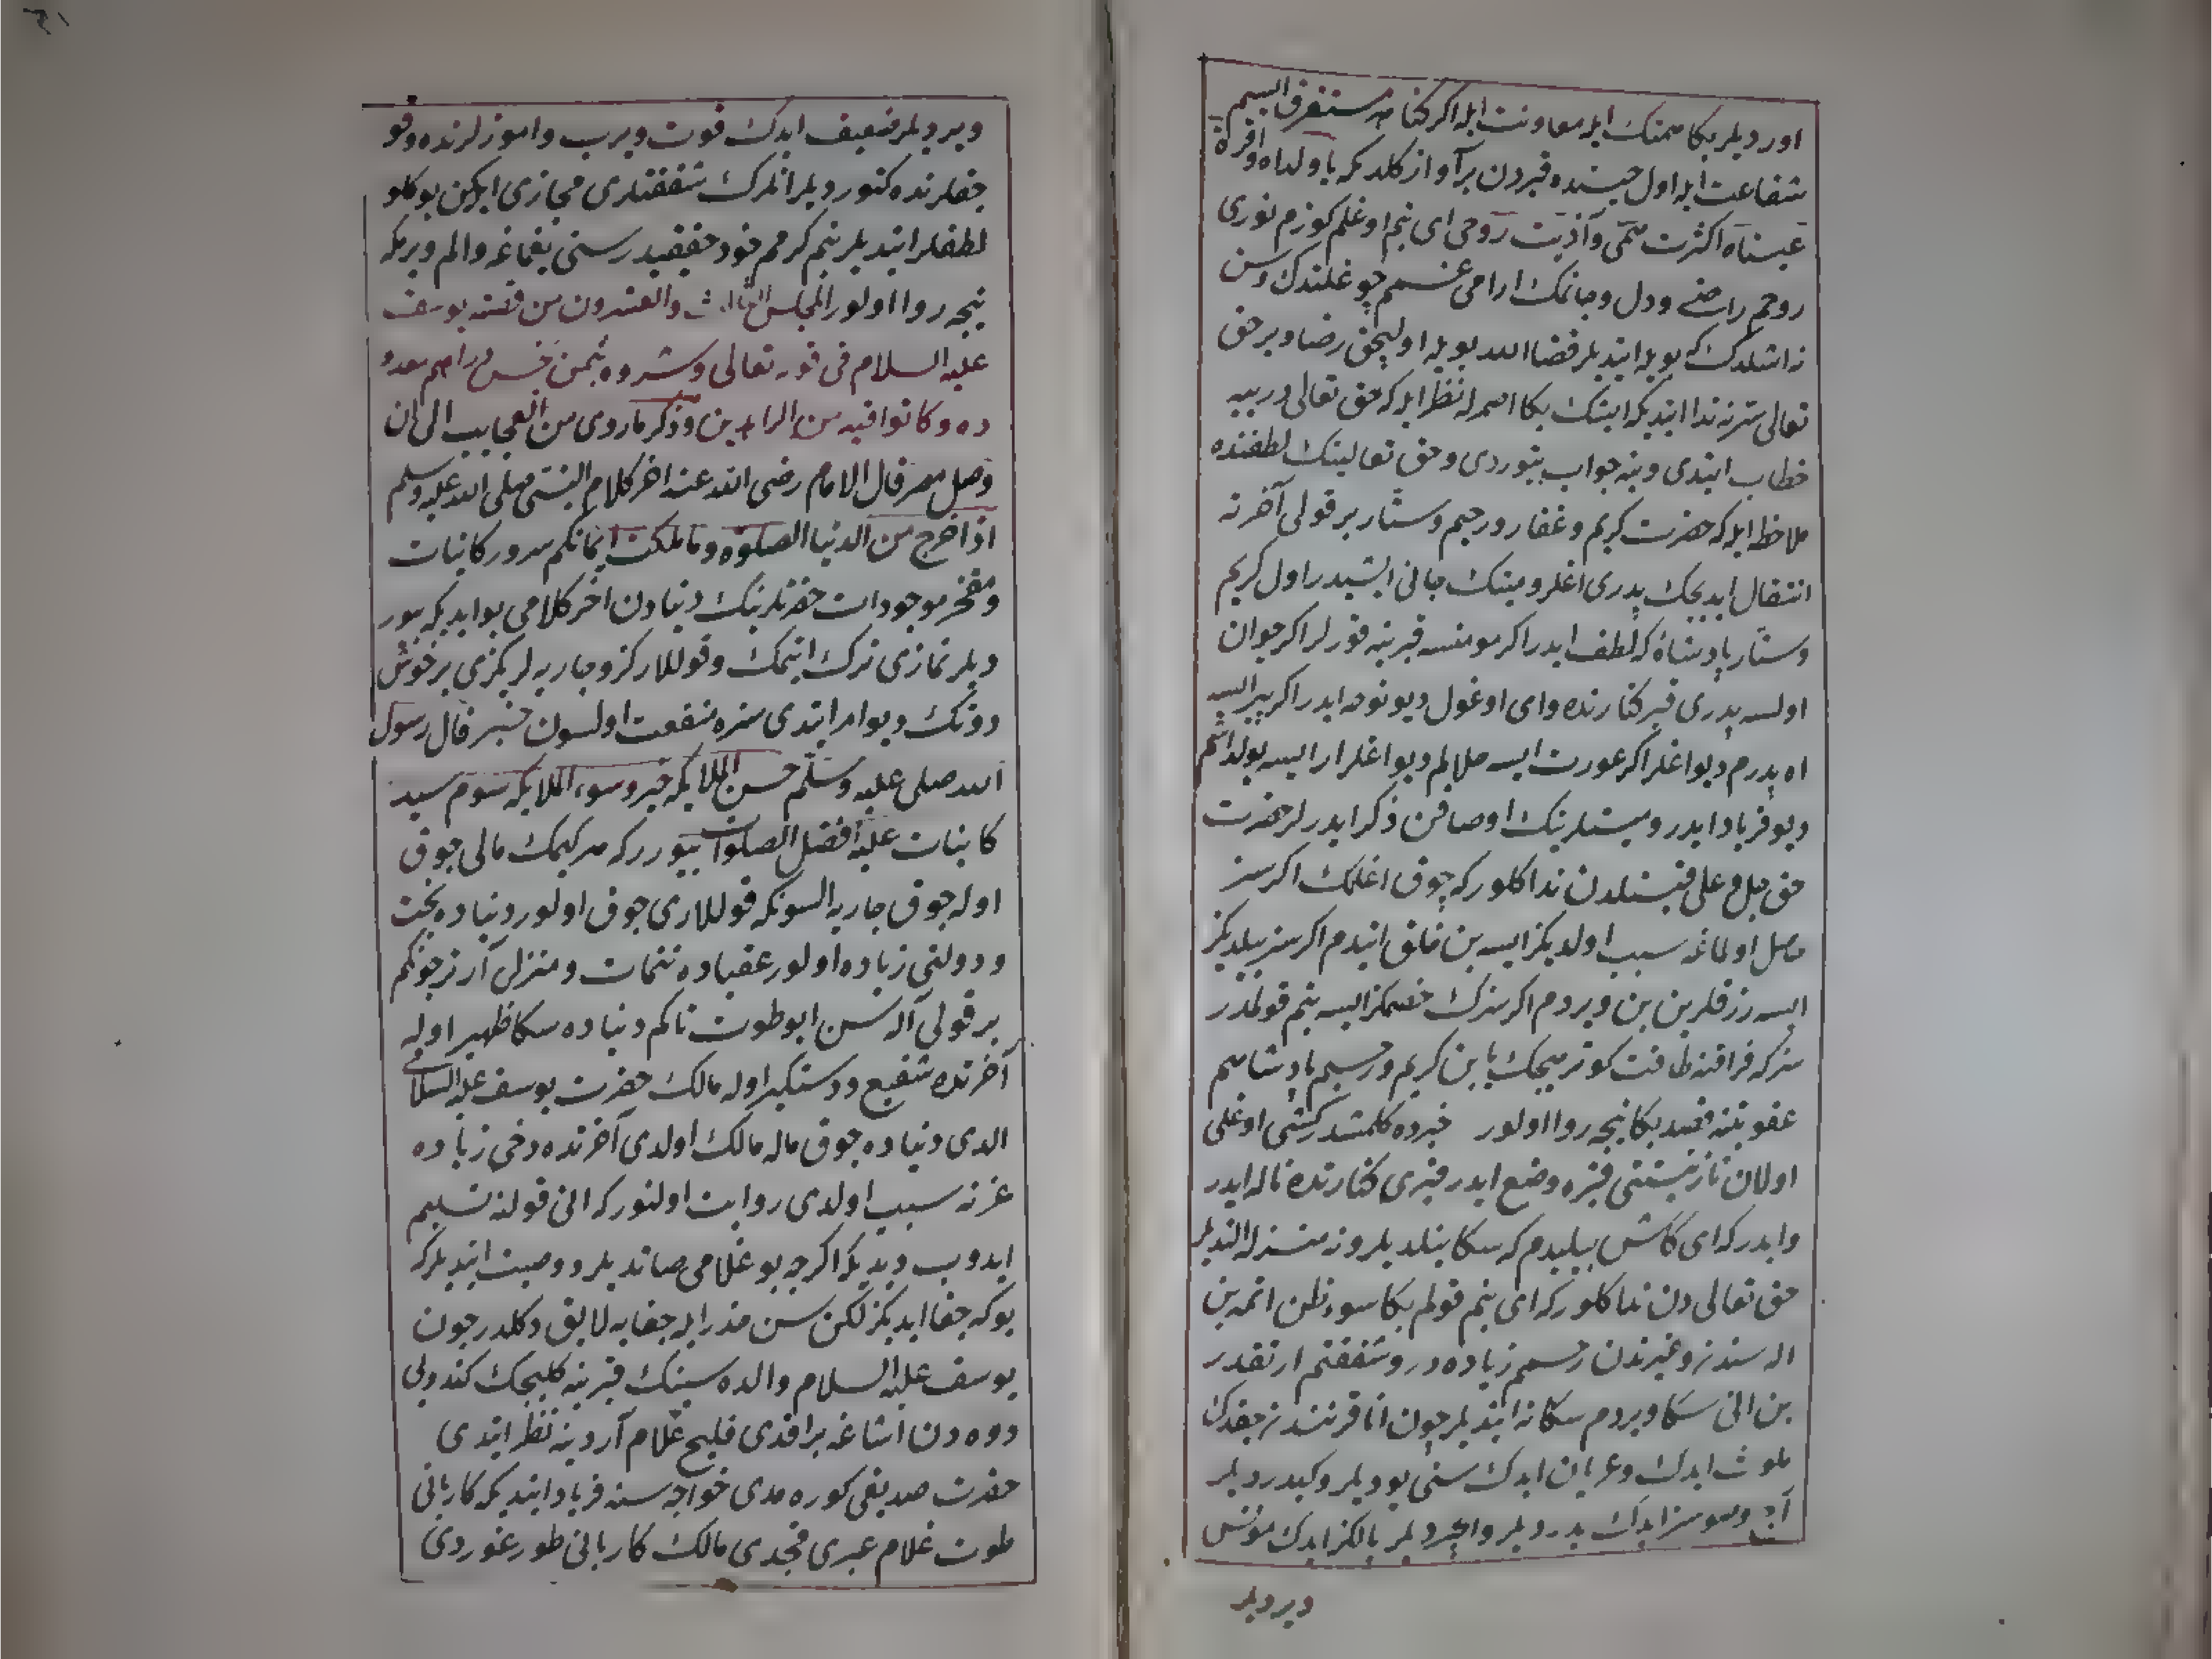 اوردیلر بكا همتك ایله معاونت ایله اكر كناهه مستغرق ایسم
شفاعت ایله اول حینده قبردن بر آواز كلدی كه یا ولداه وا قرة
عیناه اكثرت همّی وآذیت روحی ای بنم اوغلم كوزم نوری
روحم راحتی ودل وجانمك ارامی غمم چوغلتدك وسن
نه اشلدك كه بویله ایتدیلر قضاء الله بویله اولیجق رضا ویر حق
تعالی سرّنه ندا ایتدی كه ایتدك بكا اصمرله نظر ایله كه حق تعالی در بیه
خطاب ایتدی وینه جواب بیوردی وحق تعالینك لطفنده
ملاحظه ایله كه حضرت كریم وغفار ورحیم وستّار بر قولی آخرته
انتقال ایدیجك پدری اغلر ومیتك جانی ایشیدر اول كریم
وستّار پادشاه كه لطف ایدر اكر مومنسه قبرینه قورلر اكر جوان
اولسه پدری قبر كنارنده وای اوغول دیو نوحه ایدر اكر پیر ایسه
اه پدرم دیو اغلر اكر عورت ایسه حلالم دیو اغلر ار ایسه یولداشم
دیو فریاد ایدر ومیتلرینك اوصافن ذكر ایدرلر حضرت
حق جل وعلی قبلندن ندا كلور كه چوق اغلمك اكر سز
حاصل اولماغه سبب اولدیكز ایسه بن خلق ایتدم اكر سز بیلدیكز
ایسه رزقلرین بن ویردم اكر سزك خصمكز ایسه بنم قولمدر
سز كه فراقنه طاقت كوترمیجك یا بن كریم ورحیم پادشاهم
عقوبتنه قصد بكا نیجه روا اولور خبرده كلمشدر كشی اوغلی
اولان نازنیننی قبره وضع ایدر قبری كنارنده ناله ایدر
وایدر كه ای كاش بیلیدم كه سكا نیلدیلر ونه منزله ایلتدیلر
حق تعالی دن ندا كلور كه ای بنم قولم بكا سوء ظن اتمه بن
اكه سندن وغیرندن رحمم زیاده در وشفقتم ارتقدر
بن انی سكا ویردم سكا نه ایتدیلر چون انا قرنندن چقدك
ملوث ایدك وعریان ایدك سنی یودیلر وكیدردیلر
آج وصوسز ایدك یدردیلر وایچردیلر یالكز ایدك مونس
ویردیلر
ویردیلر ضعیف ایدك قوت ویرب واموزلرنده وقو
جقلرنده كتوردیلر انلرك شفقتلری مجازی ایكن بو كلو
لطفلر ایتدیلر بنم كرمم خود حقیقیدر سنی یقماغه والم ویرمكه
نیجه روا اولور المجلس الثالث والعشرون من قصه یوسف
علیه السلام فی قوله تعالی وشروه بثمن بخس دراهم معدو
ده وكانوا فیه من الزاهدین وذكر ما روی من العجایب الی ان
وصل مصر قال الامام رضی الله عنه اخر كلام النبی صلی الله علیه وسلم
اذا خرج من الدنیا الصلوة وما ملكت ایمانكم سرور كاینات
ومفخر موجودات حضرتلرینك دنیادن اخر كلامی بو ایدی كه بیور
دیلر نمازی ترك ایتمك وقوللاركز وجاریه لریكزی بر خوش
دوتك دیو امر ایتدی سزه منفعت اولسون خبر قال رسول
الله صلی علیه وسلّم حسن الملایكه خیر وسوء الملایكه شوم سید
كاینات علیه افضل الصلوات بیورر كه هر كیمك مالی چوق
اوله چوق جاریه السونكه قوللاری چوق اولور دنیاده بخت
ودولتی زیاده اولور عقباده نعمات ومنزلی آرتر چونكم
بر قولی آله سن ایو طوت تاكم دنیاده سكا ظهیر اوله
آخرتده شفیع ودستكیر اوله مالك حضرت یوسف علیه السلامی
الدی دنیاده چوق ماله مالك اولدی آخرتده دخی زیاده
عزته سبب اولدی روایت اولنور كه انی قولنه تسلیم
ایدوب دیدی كه اكرچه بو غلامی صاتدیلر ووصیت ایتدیلر كه
بوكه جفا ایدیكز لكن سن حذر ایله جفایه لایق دكلدر چون
یوسف علیه السلام والده سینك قبرینه كلیجك كندویی
دوه دن اشاغه براقدی فلیح غلام آردینه نظر ایتدی
حضرت صدیقی كوره مدی خواجه سنه فریاد ایتدی كه كاربانی
طوت غلام عبری قچدی مالك كاربانی طورغوردی